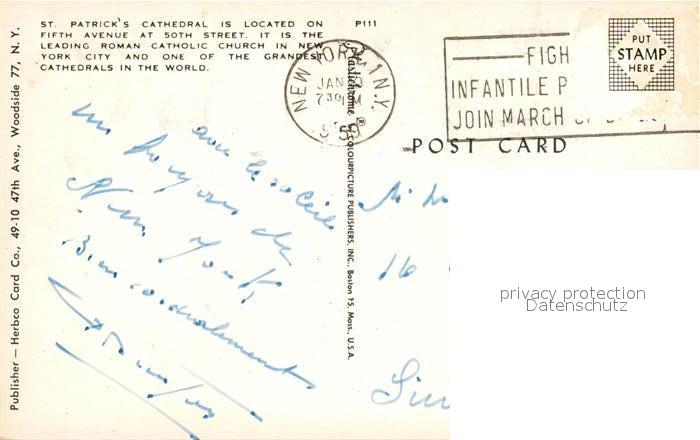 ST. PATRICK'S CATHEDRAL IS LOCATED ON
FIFTH AVENUE AT 50TH STREET. IT IS THE
LEADING ROMAN CATHOLIC CHURCH IN NEW
YORK CITY AND ONE OF THE GRANDEST
CATHEDRALS IN THE WORLD.
P111
NEW YORK, N.Y.
JAN
730 PM
FIGH
INFANTILE P
JOIN MARCH OF
PUT
STAMP
HERE
POST CARD
Plastichrome ® by COLOURPICTURE PUBLISHERS, INC., Boston 15, Mass., U.S.A.
Publisher — Herbco Card Co., 49-10 47th Ave., Woodside 77, N. Y.
avec le soleil
un bonjour de
New York
Bien cordialement
16
privacy protection
Datenschutz